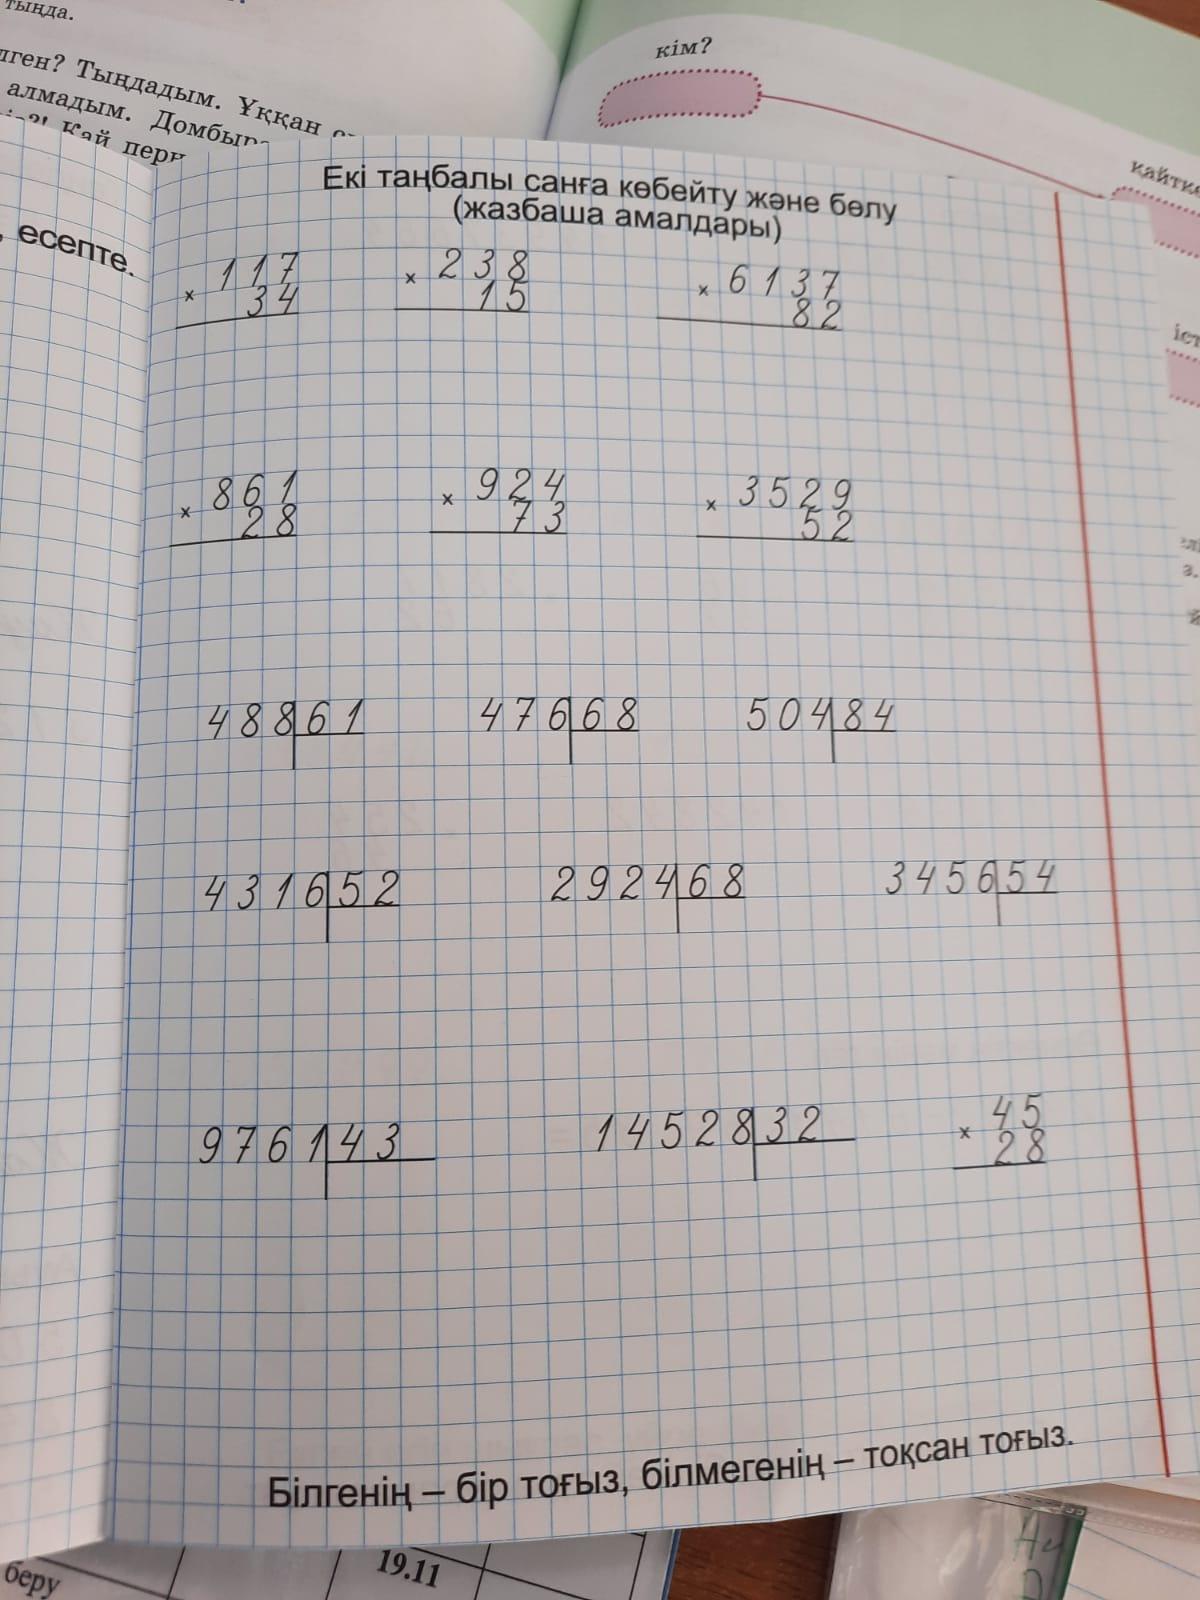 тыңда.
лген? Тыңдадым. Ұққан
алмадым. Домбыра
Қай перн
кім?
қайтке
іст
, есепте.
Екі таңбалы санға көбейту және бөлу
(жазбаша амалдары)
117 238 6137
× 34 × 15 × 82
861 924 3529
× 28 × 73 × 52
488|61 476|68 504|84
4316|52 2924|68 3456|54
9761|43 14528|32 45
× 28
Білгенің – бір тоғыз, білмегенің – тоқсан тоғыз.
беру
19.11